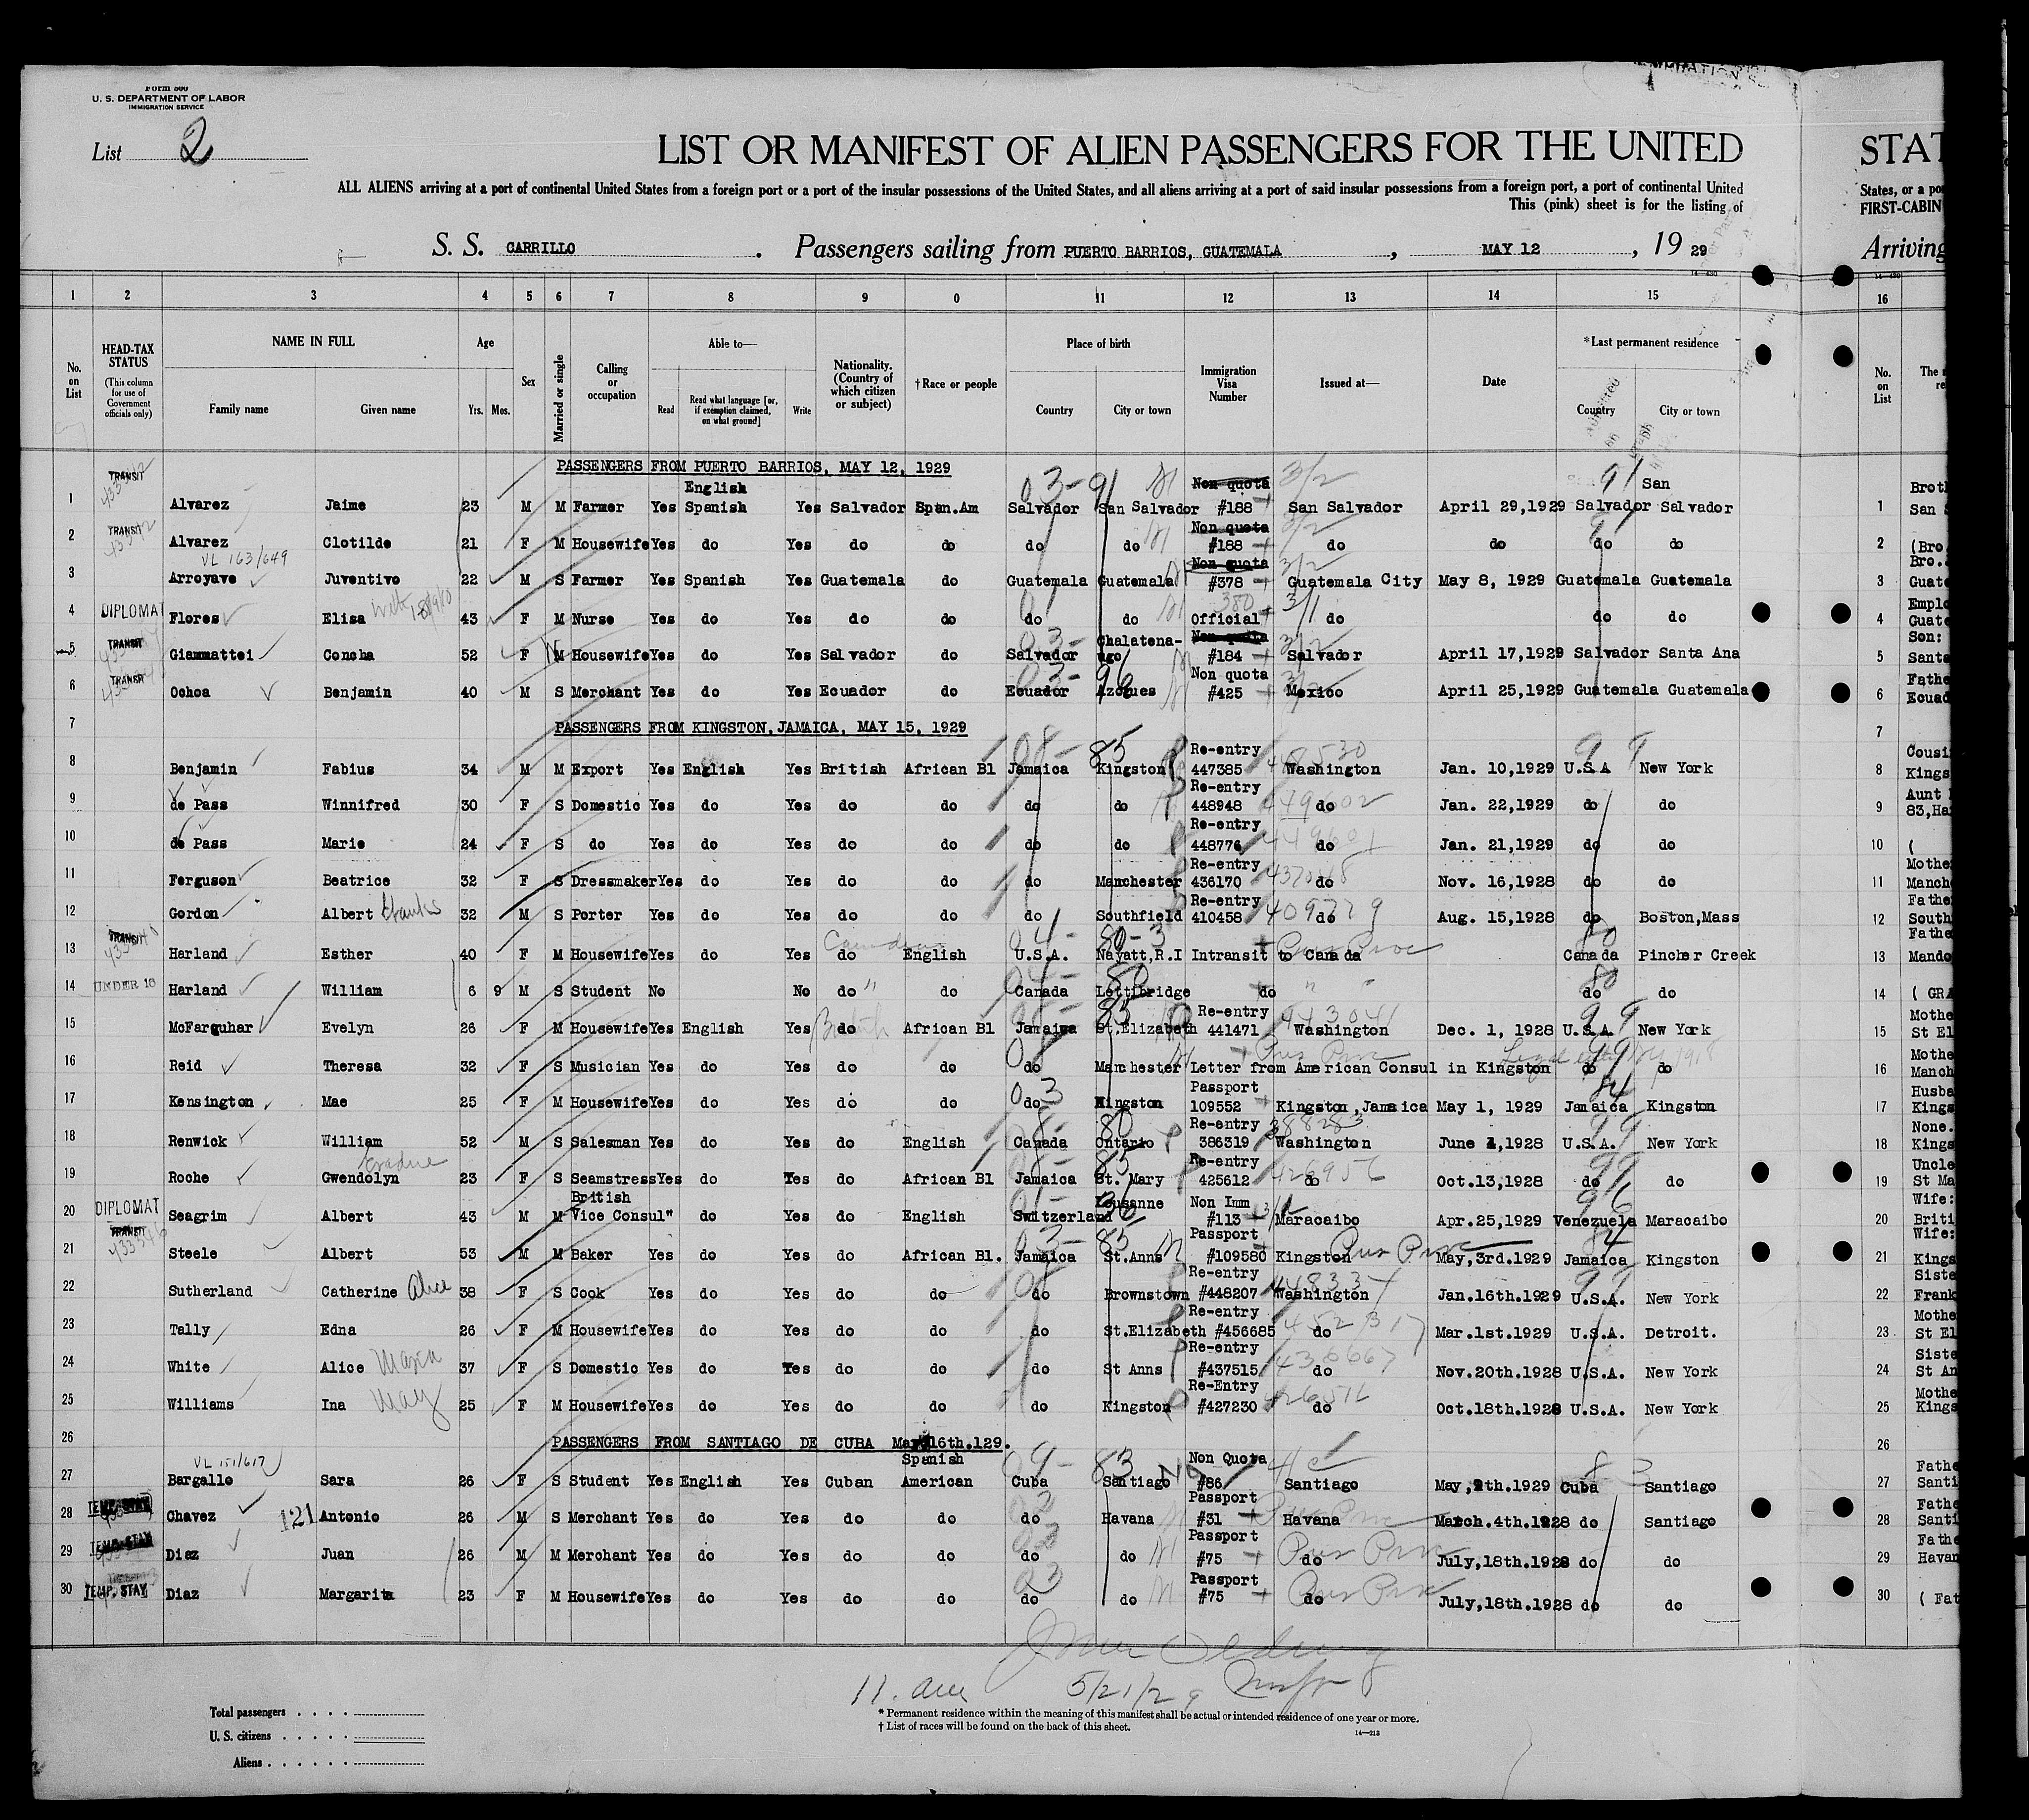 Form 500
U. S. DEPARTMENT OF LABOR
IMMIGRATION SERVICE
List 2
LIST OR MANIFEST OF ALIEN PASSENGERS FOR THE UNITED
STAT
ALL ALIENS arriving at a port of continental United States from a foreign port or a port of the insular possessions of the United States, and all aliens arriving at a port of said insular possessions from a foreign port, a port of continental United
States, or a po
This (pink) sheet is for the listing of
FIRST-CABIN
S. S. CARRILLO. Passengers sailing from PUERTO BARRIOS, GUATEMALA, MAY 12, 19 29
Arriving
1 2 3 4 5 6 7 8 9 0 11 12 13 14 15 16
No. on List
HEAD-TAX STATUS (This column for use of Government officials only)
NAME IN FULL
Family name Given name
Age
Yrs. Mos.
Sex
Married or single
Calling or occupation
Able to—
Read Read what language [or, if exemption claimed, on what ground] Write
Nationality. (Country of which citizen or subject)
†Race or people
Place of birth
Country City or town
Immigration Visa Number
Issued at—
Date
*Last permanent residence
Country City or town
No. on List
PASSENGERS FROM PUERTO BARRIOS, MAY 12, 1929
1 TRANSIT Alvarez Jaime 23 M M Farmer Yes English Spanish Yes Salvador Span.Am Salvador San Salvador Non quota #188 San Salvador April 29,1929 Salvador San Salvador 1 Brot San S
2 TRANSIT Alvarez Clotilde 21 F M Housewife Yes do Yes do do do do Non quota #188 do do do do 2 (Bro
VL 163/649
3 Arroyave Juventivo 22 M S Farmer Yes Spanish Yes Guatemala do Guatemala Guatemala Non quota #378 Guatemala City May 8, 1929 Guatemala Guatemala 3 Bro. Guate
4 DIPLOMAT Flores Elisa 43 F M Nurse Yes do Yes do do do do 380 Official 3/1 do do do 4 Emplo Guate
5 TRANSIT Giammattei Concha 52 F M Housewife Yes do Yes Salvador do Salvador Chalatena-ngo Non quota #184 Salvador April 17,1929 Salvador Santa Ana 5 Son: Santa
6 TRANSIT Ochoa Benjamin 40 M S Merchant Yes do Yes Ecuador do Ecuador Azogues Non quota #425 Mexico April 25,1929 Guatemala Guatemala 6 Father Ecuad
7 PASSENGERS FROM KINGSTON, JAMAICA, MAY 15, 1929 7
8 Benjamin Fabius 34 M M Export Yes English Yes British African Bl Jamaica Kingston Re-entry 447385 Washington Jan. 10,1929 U.S.A New York 8 Cousi Kings
9 de Pass Winnifred 30 F S Domestic Yes do Yes do do do do Re-entry 448948 do Jan. 22,1929 do do 9 Aunt 83,Ha
10 de Pass Marie 24 F S do Yes do Yes do do do do Re-entry 448776 do Jan. 21,1929 do do 10 (
11 Ferguson Beatrice 32 F S Dressmaker Yes do Yes do do do Manchester Re-entry 436170 do Nov. 16,1928 do do 11 Mothe Manch
12 Gordon Albert 32 M S Porter Yes do Yes do do do Southfield Re-entry 410458 do Aug. 15,1928 do Boston,Mass 12 Fathe South
13 TRANSIT Harland Esther 40 F M Housewife Yes do Yes do English U.S.A. Nayatt,R.I Intransit to Canada Canada Pincher Creek 13 Fathe Mando
14 UNDER 16 Harland William 6 9 M S Student No No do do Canada Lettibridge do do do 14 ( GRA
15 McFarguhar Evelyn 26 F M Housewife Yes English Yes do African Bl Jamaica St.Elizabeth Re-entry 441471 Washington Dec. 1, 1928 U.S.A. New York 15 Mothe St El
16 Reid Theresa 32 F S Musician Yes do Yes do do do Manchester Letter from American Consul in Kingston do do 16 Mothe Manch
17 Kensington Mae 25 F M Housewife Yes do Yes do do do Kingston Passport 109552 Kingston,Jamaica May 1, 1929 Jamaica Kingston 17 Husba Kings
18 Renwick William 52 M S Salesman Yes do Yes do English Canada Ontario Re-entry 386319 Washington June 1,1928 U.S.A. New York 18 None. Kings
19 Roche Gwendolyn 23 F S Seamstress Yes do Yes do African Bl Jamaica St. Mary Re-entry 425612 do Oct.13,1928 do do 19 Uncle St Ma
20 DIPLOMAT Seagrim Albert 43 M M British Vice Consul" do Yes do English Switzerland Lousanne Non Imm #113 Maracaibo Apr.25,1929 Venezuela Maracaibo 20 Wife: Briti
21 TRANSIT Steele Albert 53 M M Baker Yes do Yes do African Bl. Jamaica St.Anns Passport #109580 Kingston May,3rd.1929 Jamaica Kingston 21 Wife: Kings
22 Sutherland Catherine Alice 38 F S Cook Yes do Yes do do do Brownstown Re-entry #448207 Washington Jan.16th.1929 U.S.A. New York 22 Siste Frank
23 Tally Edna 26 F M Housewife Yes do Yes do do do St.Elizabeth Re-entry #456685 do Mar.1st.1929 U.S.A. Detroit. 23 Mothe St El
24 White Alice 37 F S Domestic Yes do Yes do do do St Anns Re-entry #437515 do Nov.20th.1928 U.S.A. New York 24 Siste St An
25 Williams Ina May 25 F M Housewife Yes do Yes do do do Kingston Re-Entry #427230 do Oct.18th.1928 U.S.A. New York 25 Mothe Kings
26 PASSENGERS FROM SANTIAGO DE CUBA May 16th.129. 26
VL 151/617
27 Bargallo Sara 26 F S Student Yes English Yes Cuban Spanish American Cuba Santiago Non Quota #86 Santiago May,9th.1929 Cuba Santiago 27 Fathe Santi
28 TEMP. STAY Chavez 121 Antonio 26 M S Merchant Yes do Yes do do do Havana Passport #31 Havana March.4th.1928 do Santiago 28 Fathe Santi
29 TEMP. STAY Diaz Juan 26 M M Merchant Yes do Yes do do do do Passport #75 do July,18th.1928 do do 29 Fathe Havan
30 TEMP. STAY Diaz Margarita 23 F M Housewife Yes do Yes do do do do Passport #75 do July,18th.1928 do do 30 ( Fat
11. am 5/21/29
Total passengers
U. S. citizens
Aliens
* Permanent residence within the meaning of this manifest shall be actual or intended residence of one year or more.
† List of races will be found on the back of this sheet.
14—213